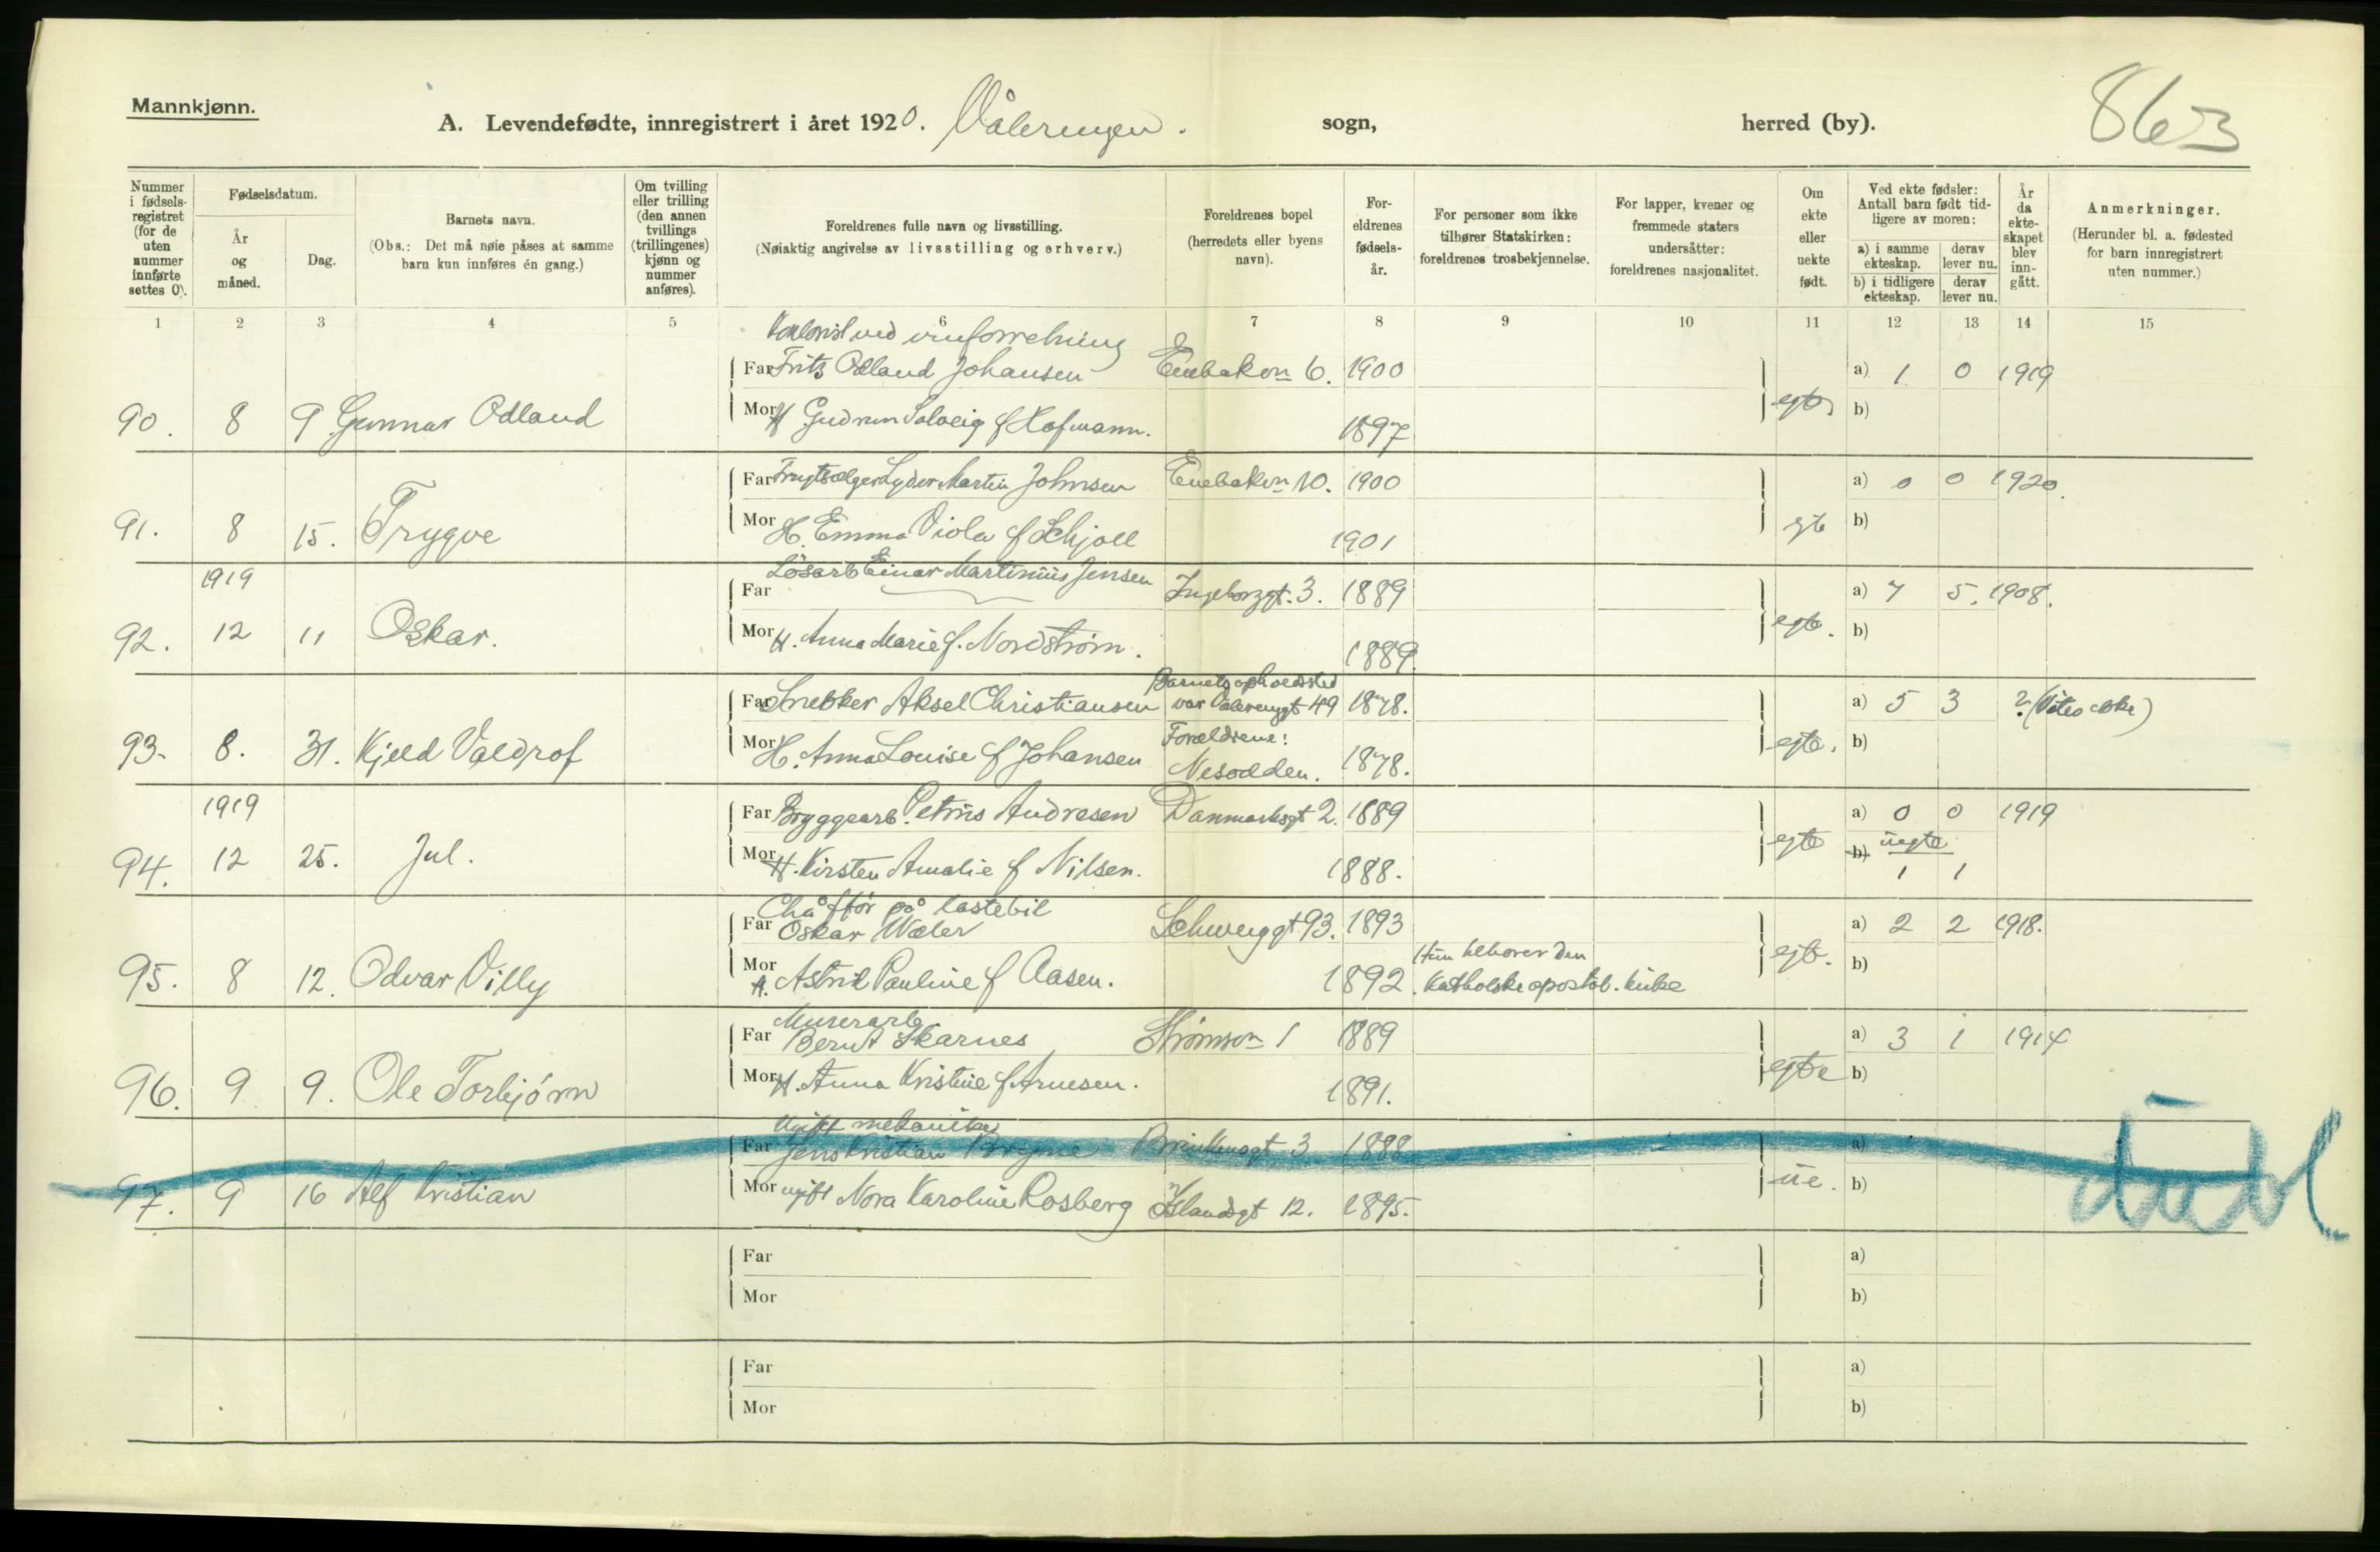 Mannkjønn.
A. Levendefødte, innregistrert i året 1920. Vålerengen. sogn, herred (by). 863
Nummer i fødselsregistret (for de uten nummer innførte settes 0).
Fødselsdatum.
År og måned.
Dag.
Barnets navn.
(Obs.: Det må nøie påses at samme barn kun innføres én gang.)
Om tvilling eller trilling (den annen tvillings (trillingenes) kjønn og nummer anføres).
Foreldrenes fulle navn og livsstilling.
(Nøiaktig angivelse av livsstilling og erhverv.)
Foreldrenes bopel (herredets eller byens navn).
For-eldrenes fødsels-år.
For personer som ikke tilhører Statskirken: foreldrenes trosbekjennelse.
For lapper, kvener og fremmede staters undersåtter: foreldrenes nasjonalitet.
Om ekte eller uekte født.
Ved ekte fødsler: Antall barn født tid-ligere av moren:
a) i samme ekteskap.
derav lever nu.
b) i tidligere ekteskap.
derav lever nu.
År da ekte-skapet blev inn-gått.
Anmerkninger.
(Herunder bl. a. fødested for barn innregistrert uten nummer.)
1 2 3 4 5 6 7 8 9 10 11 12 13 14 15
Kontorist ved vinforretning
Far Fritz Odland Johansen Enebakvn 6. 1900 a) 1 0 1919
90. 8 9 Gunnar Odland Mor H Gudrun Solveig f Hofmann. 1897 egte b)
Far Frugtsælger Lyder Martin Johnsen Enebakvn 10. 1900 a) 0 0 1920.
91. 8 15. Trygve Mor H. Emma Viola f Schjoll 1901 egte b)
1919 Far Løsarb Einar Martinius Jensen Ingeborggt. 3. 1889 a) 7 5. 1908.
92. 12 11 Oskar. Mor H. Anna Marie f. Nordstrøm. 1889. egte. b)
Barnets opholdssted
Far Snekker Aksel Christiansen var Vålerenggt 49 1878. a) 5 3 ? (Vites ikke)
93. 8. 31. Kjeld Valdrof Mor H. Anna Louise f Johansen Forældrene: Nesodden. 1878. egte. b)
1919 Far Bryggearb. Petrus Andresen Danmarksgt 2. 1889 a) 0 0 1919
94. 12 25. Jul. Mor H. Kirsten Amalie f Nilsen. 1888. egte b) uegte
1 1
Chåffør på lastebil
Far Oskar Wæler Schwenggt 93. 1893 a) 2 2 1918.
Hun tilhører den
95. 8 12. Odvar Villy Mor H. Astrid Pauline f Aasen. 1892. katholske apostol. kirke egte. b)
Murerarb
Far Bernt Skarnes Strømsvn 1 1889 a) 3 1 1914
96. 9 9. Ole Torbjørn Mor H. Anna Kristine f. Arnesen. 1891. egte b)
Ugift mekaniker
Far Jens Kristian Bryne Brinkensgt 3 1888 a)
97. 9 16 Alf Kristian Mor ugift Nora Karoline Rosberg Islandsgt 12. 1895. ue. b)
Far a)
Mor b)
Far a)
Mor b)